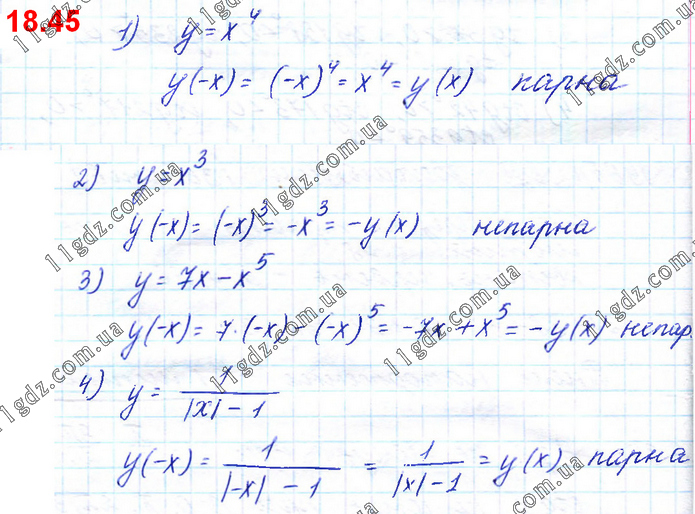 18.45
1) y = x⁴
y(-x) = (-x)⁴ = x⁴ = y(x) парна
2) y = x³
y(-x) = (-x)³ = -x³ = -y(x) непарна
3) y = 7x - x⁵
y(-x) = 7·(-x) - (-x)⁵ = -7x + x⁵ = -y(x) непар.
4) y = 1/(|x| - 1)
y(-x) = 1/(|-x| - 1) = 1/(|x| - 1) = y(x) парна
11gdz.com.ua
11gdz.com.ua
11gdz.com.ua
11gdz.com.ua
11gdz.com.ua
11gdz.com.ua
11gdz.com.ua
11gdz.com.ua